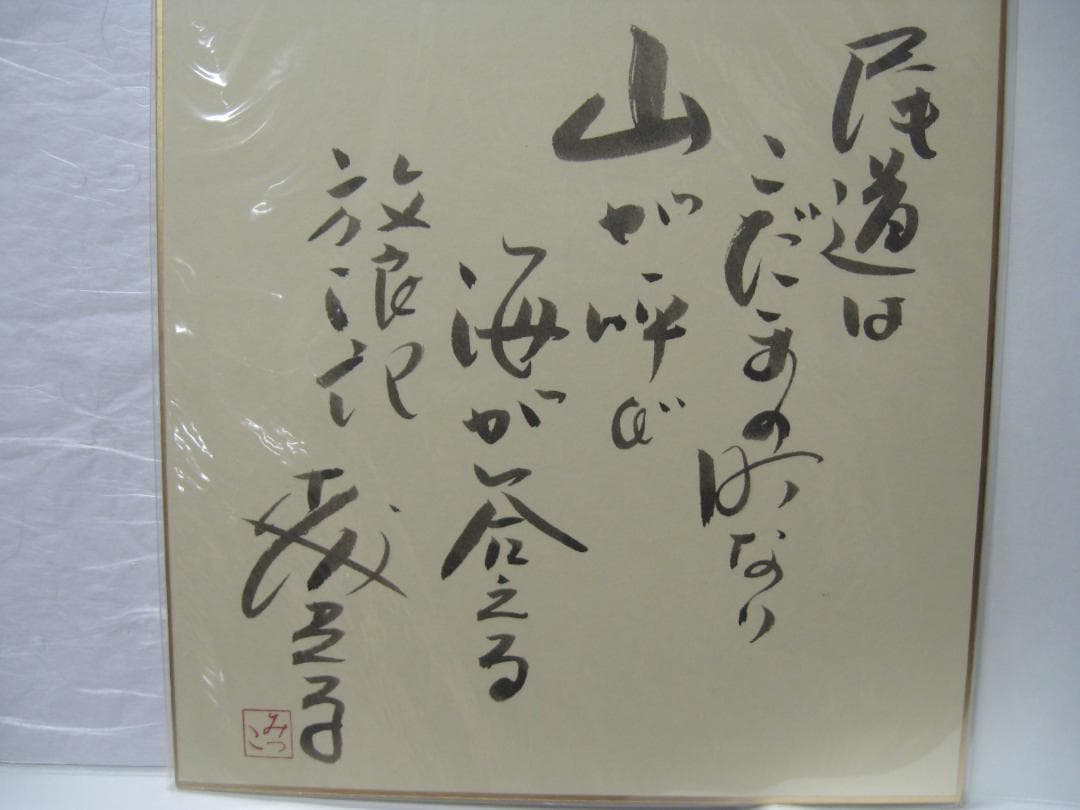 尾道は
こだまの町なり
山が呼び
海が答える
放浪記
光子
みつこ